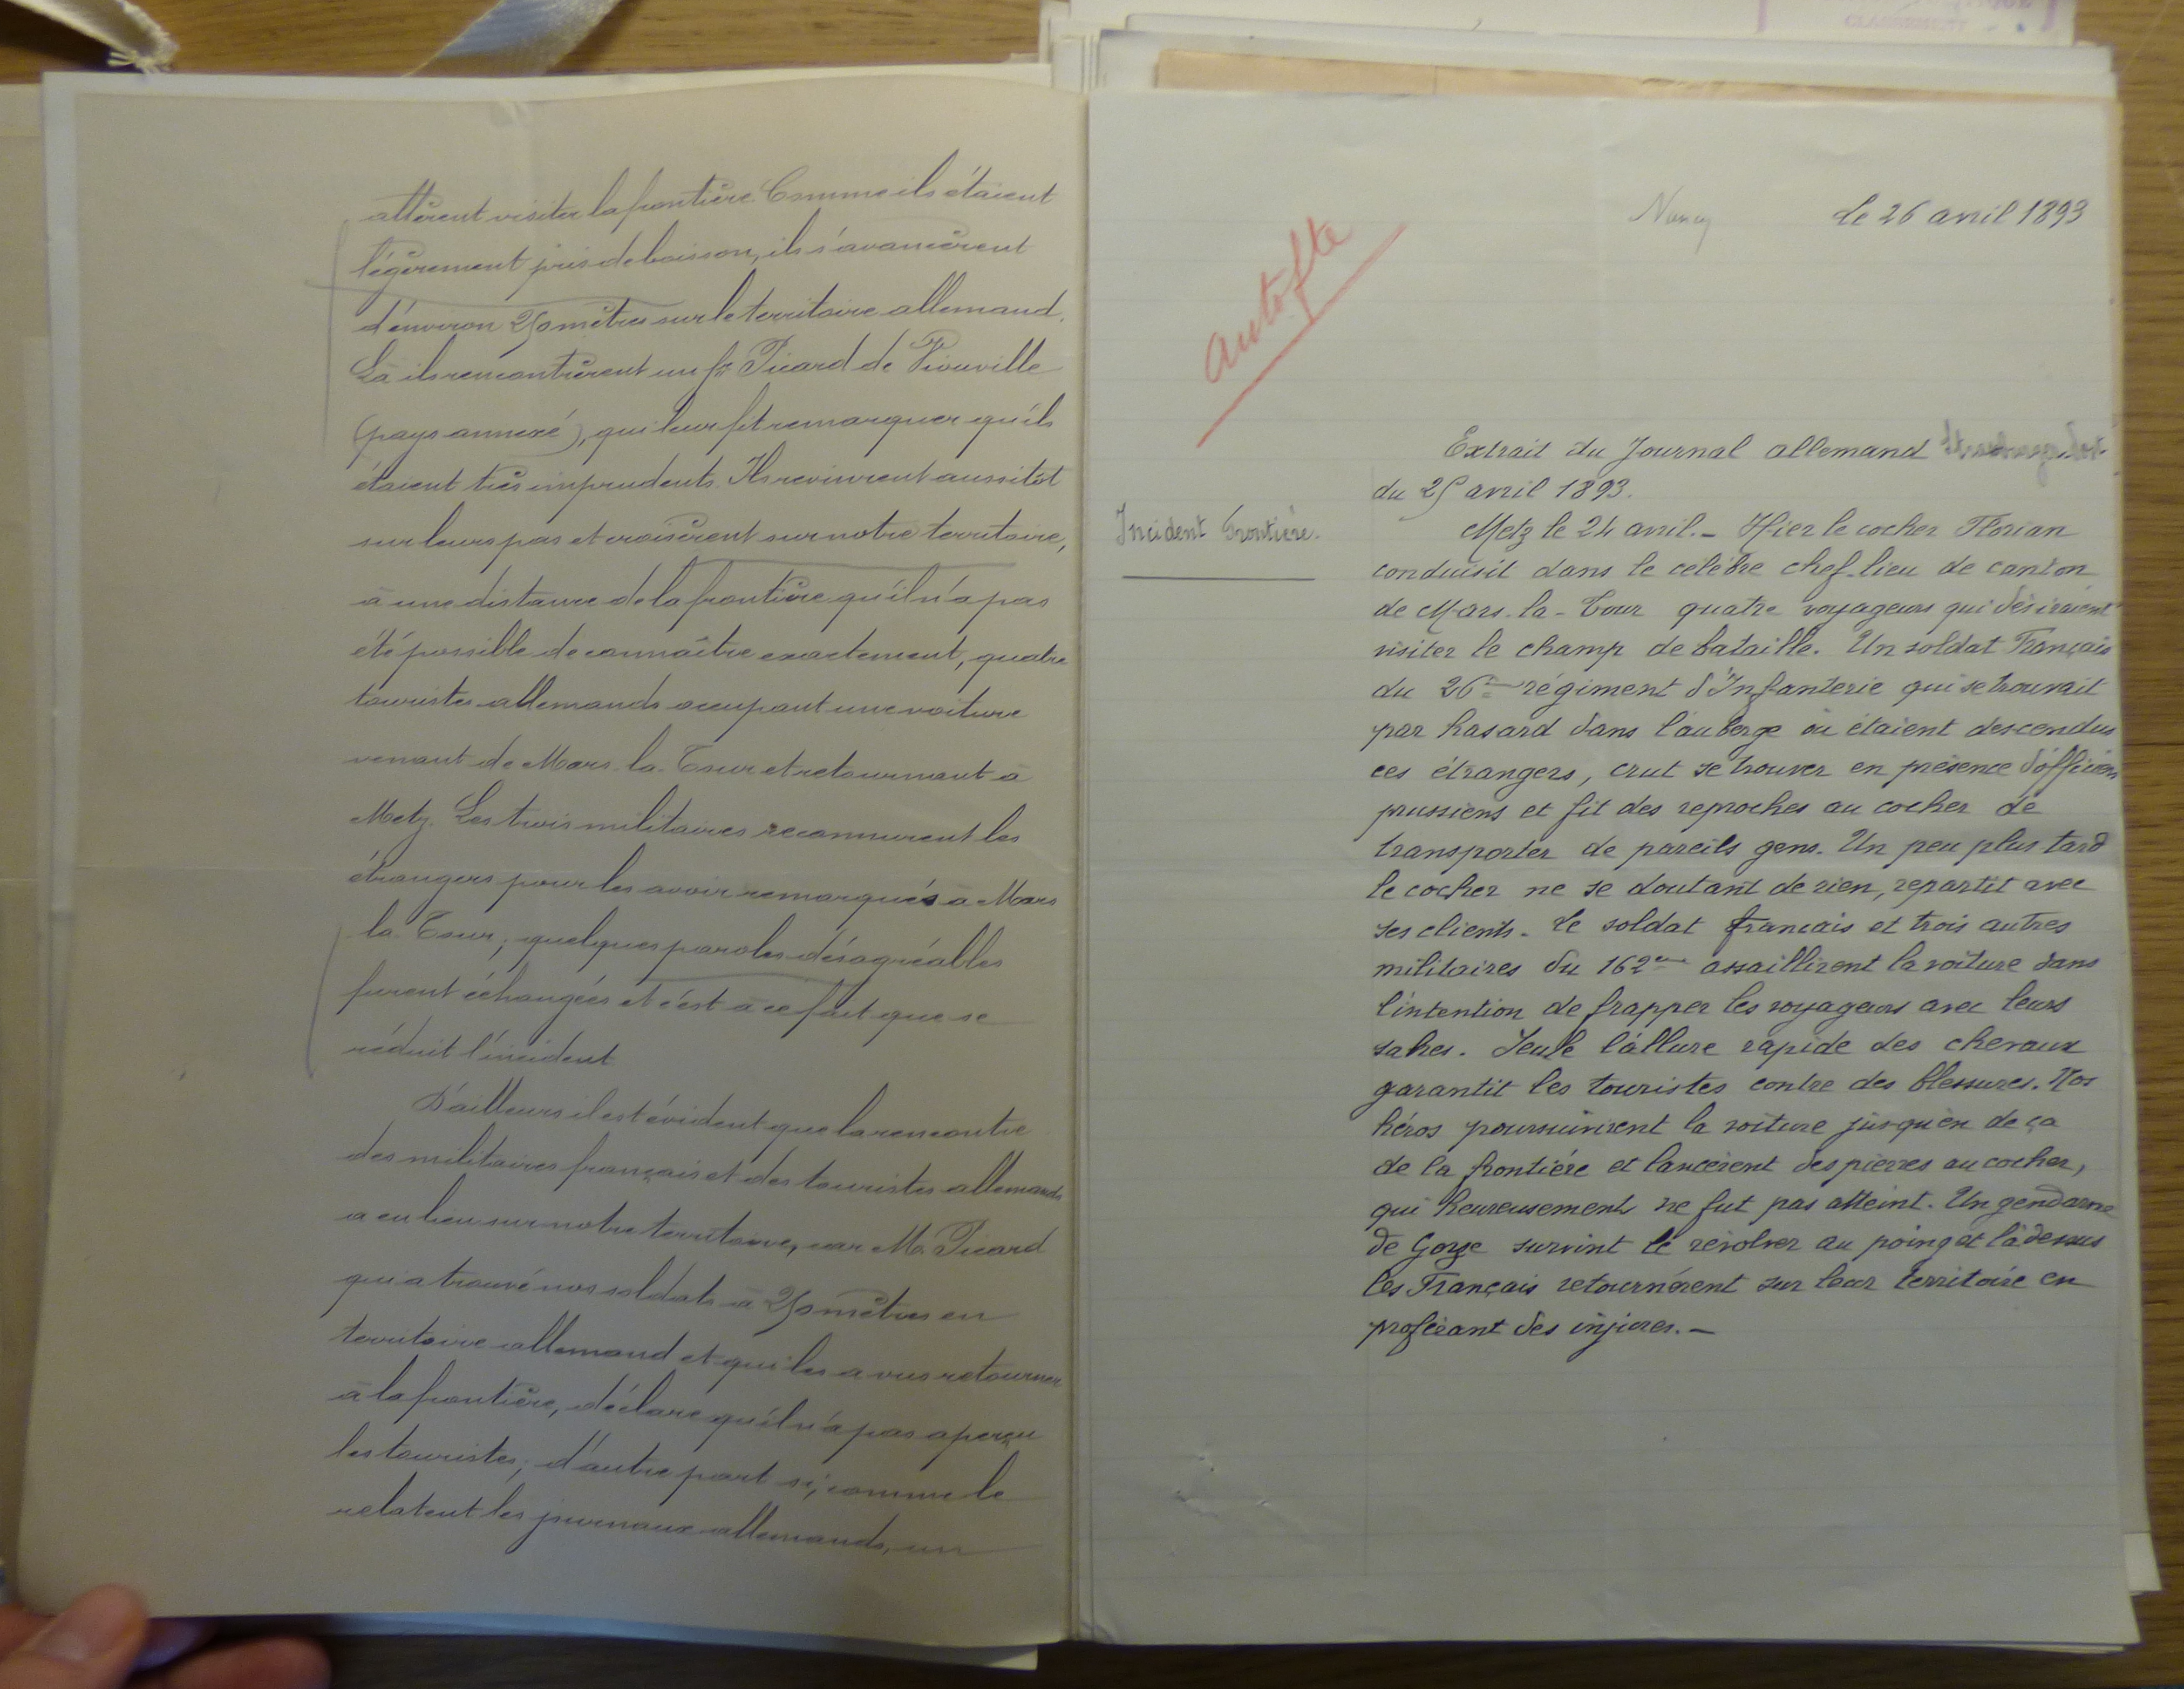 allèrent visiter la frontière. Comme ils étaient
légèrement pris de boisson, ils s'avancèrent
d'environ 250 mètres sur le territoire allemand.
Là ils rencontrèrent un sr Picard de Vionville
(pays annexé), qui leur fit remarquer qu'ils
étaient très imprudents. Ils revinrent aussitôt
sur leurs pas et croisèrent sur notre territoire,
à une distance de la frontière qu'il n'a pas
été possible de connaître exactement, quatre
touristes allemands occupant une voiture
venant de Mars-la-Tour et retournant à
Metz. Les trois militaires reconnurent les
étrangers pour les avoir remarqués à Mars
la-Tour; quelques paroles désagréables
furent échangées et c'est à ce fait que se
réduit l'incident
D'ailleurs il est évident que la rencontre
des militaires français et des touristes allemands
a eu lieu sur notre territoire, car Mr Picard
qui a trouvé nos soldats à 250 mètres en
territoire allemand et qui les a vus retourner
à la frontière, déclare qu'il n'a pas aperçu
les touristes; d'autre part si, comme le
relatent les journaux allemands, un
Nancy le 26 avril 1893
Extrait du Journal allemand
du 25 avril 1893.
Incident Frontière.
Metz le 24 avril. - Hier le cocher Florian
conduisit dans le célèbre chef-lieu de canton
de Mars-la-Tour quatre voyageurs qui désiraient
visiter le champ de bataille. Un soldat Français
du 26me régiment d'Infanterie qui se trouvait
par hasard dans l'auberge où étaient descendus
ces étrangers, crut se trouver en présence d'officiers
prussiens et fit des reproches au cocher de
transporter de pareils gens. Un peu plus tard
le cocher ne se doutant de rien, repartit avec
ses clients. Le soldat français et trois autres
militaires du 162me assaillirent la voiture dans
l'intention de frapper les voyageurs avec leurs
sabres. Seule l'allure rapide des chevaux
garantit les touristes contre des blessures. Nos
héros poursuivirent la voiture jusqu'en deça
de la frontière et lancèrent des pierres au cocher,
qui heureusement ne fut pas atteint. Un gendarme
de Gorze survint le révolver au poing et là dessus
les Français retournèrent sur leur territoire en
proférant des injures. -